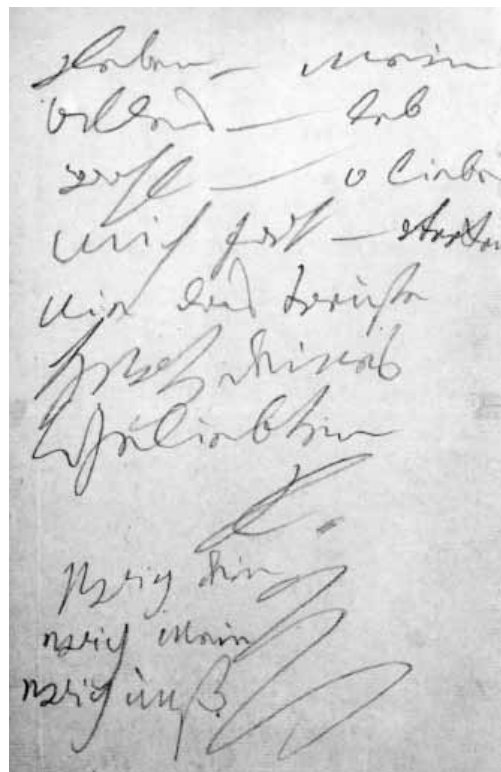 Leben — Mein
alles — leb
wohl — o liebe
mich fort — verken
nie das treuste
Herz deines
Geliebten
L.
ewig dein
ewig mein
ewig unß